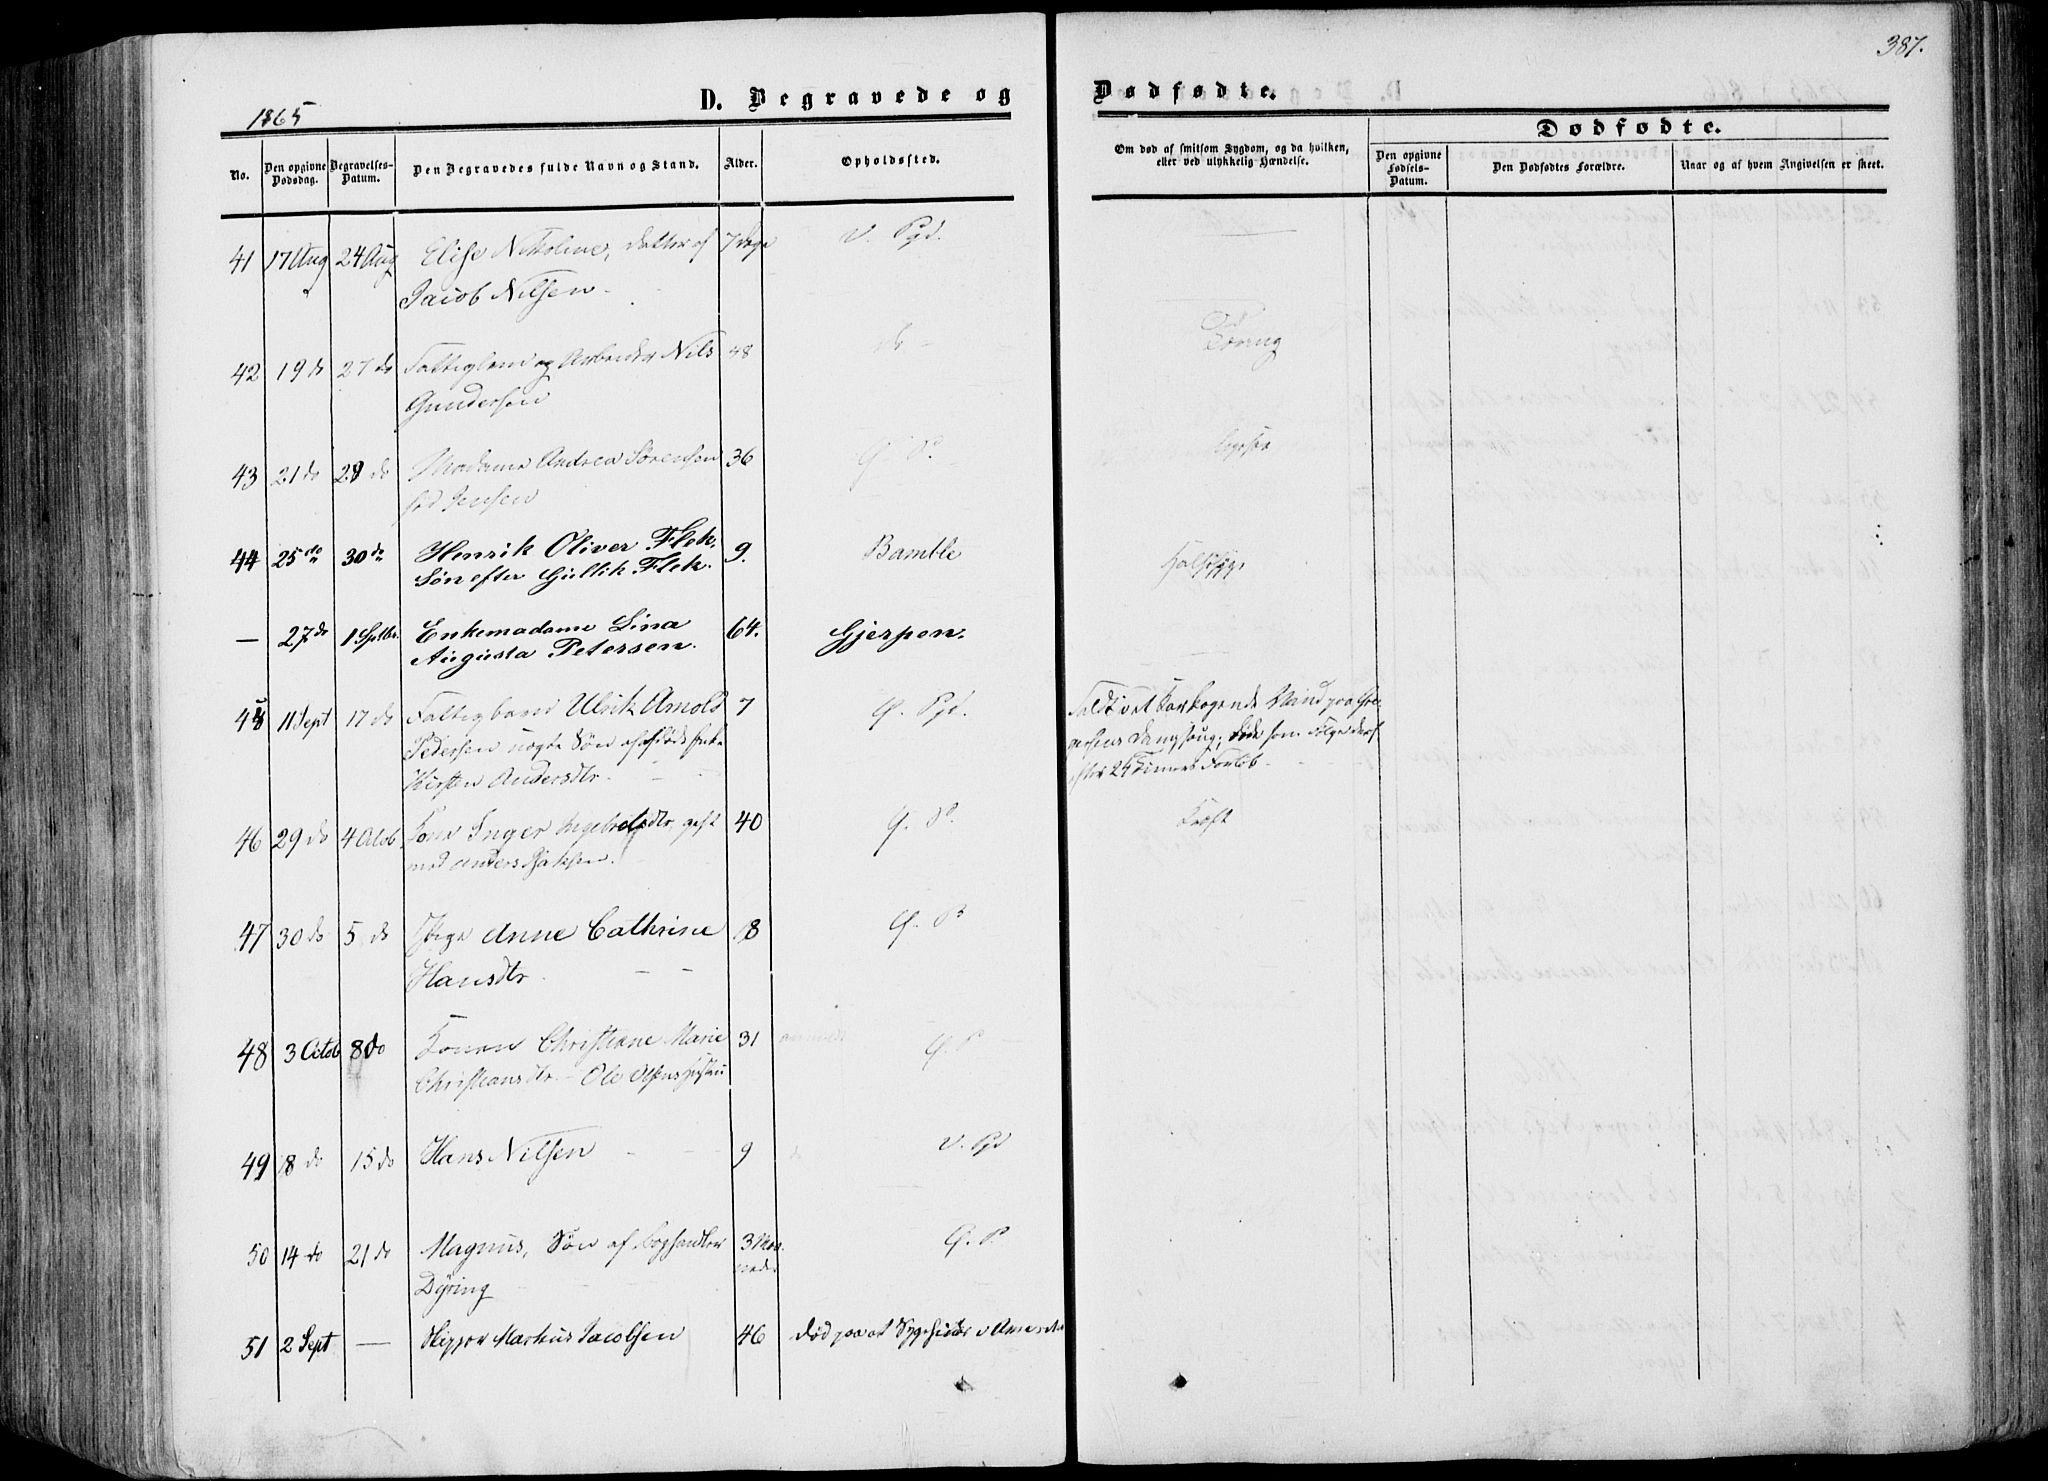 387.
1865
D. Begravede og
Dødfødte.
No.
Den opgivne Dødsdag.
Begravelses-Datum.
Den Begravedes fulde Navn og Stand.
Alder.
Opholdssted.
Om død af smitsom Sygdom, og da hvilken, eller ved ulykkelig Hændelse.
Dødfødte.
Den opgivne Fødsels-Datum.
Den Dødfødtes Forældre.
Naar og af hvem Angivelsen er skeet.
41 17 Aug 24 Aug Elise Nikoline, datter af 7 dage V. Pgd.
Jacob Nilsen -
42 19 do 27 do Fattiglem og Arbeider Nils 48 do -
Gundersen
43 21 do 28 do Madame Andrea Sørensen 36
fød Jensen
44 25 do 30 do Henrik Oliver Flek, 9. Bamble
Søn efter Gullik Flek.
— 27 do 1 Septbr. Enkemadame Lina 64. Gjerpen.
Augusta Petersen.
45 11 Sept 17 do Fattigbarn Ulrik Arnold 7 Ø. Pgd.
Pedersen uægte Søn af
Kirsten Andersdtr.
24 Timers Forløb.
46 29 do 4 Octob Kone Inger Ingebretsdtr, gift 40 Kræft
med Anders
47 30 do 5 do Pige Anne Cathrine 18
Hansdtr.
48 3 Octob 8 do Konen Christiane Marie 31
Christiansdtr. - Ole Olsens Hustru
49 8 do 15 do Hans Nilsen - - 9 V. Pgd
50 14 do 21 do Magnus, Søn af Boghandler 3 Maa-
neder
Dyring
51 2 Sept — Skipper Markus Jacobsen 46 død paa et Sygehus